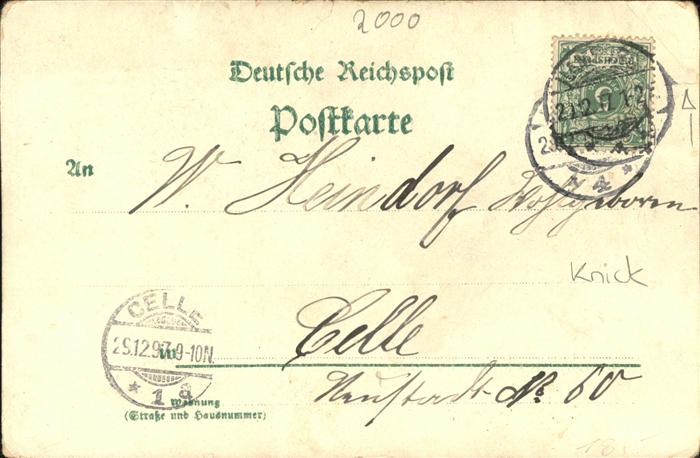 2000
Deutsche Reichspost
Postkarte
An
W. Heindorf Wohlgeboren
Knick
CELLE
29.12.97.9-10N.
* 1 a
in
Celle
Neustadt No 60
Wohnung
(Straße und Hausnummer)